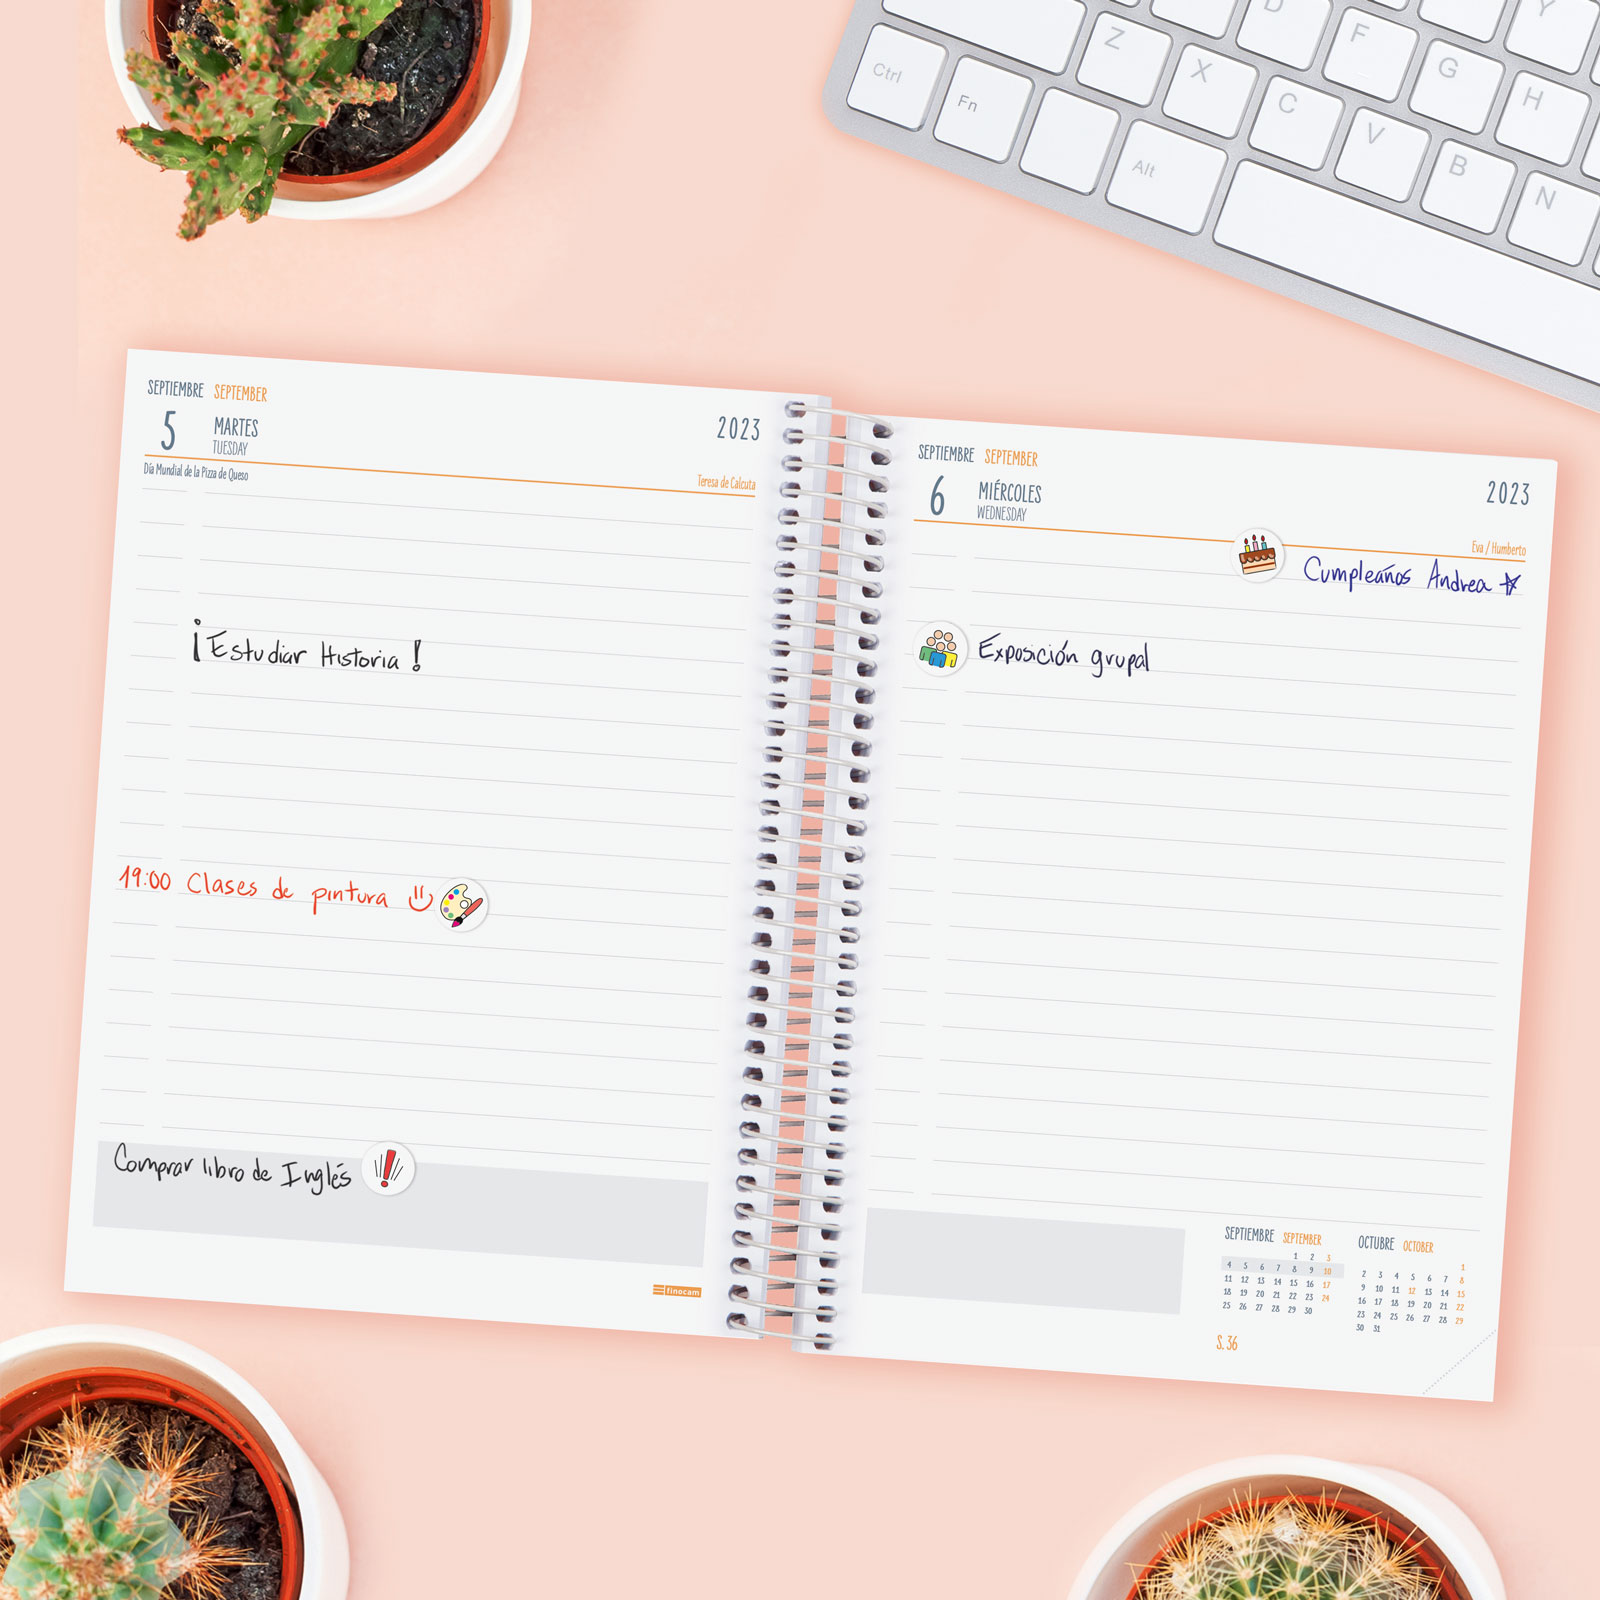 D F G H Y
Z X C V B N
Ctrl Fn Alt
SEPTIEMBRE SEPTEMBER
5 MARTES 2023
TUESDAY
Día Mundial de la Pizza de Queso Teresa de Calcuta
¡Estudiar Historia!
19:00 Clases de pintura
Comprar libro de Inglés
finocam
SEPTIEMBRE SEPTEMBER
6 MIÉRCOLES 2023
WEDNESDAY
Eva / Humberto
Cumpleaños Andrea
Exposición grupal
SEPTIEMBRE SEPTEMBER
1 2 3
4 5 6 7 8 9 10
11 12 13 14 15 16 17
18 19 20 21 22 23 24
25 26 27 28 29 30
OCTUBRE OCTOBER
1
2 3 4 5 6 7 8
9 10 11 12 13 14 15
16 17 18 19 20 21 22
23 24 25 26 27 28 29
30 31
S. 36